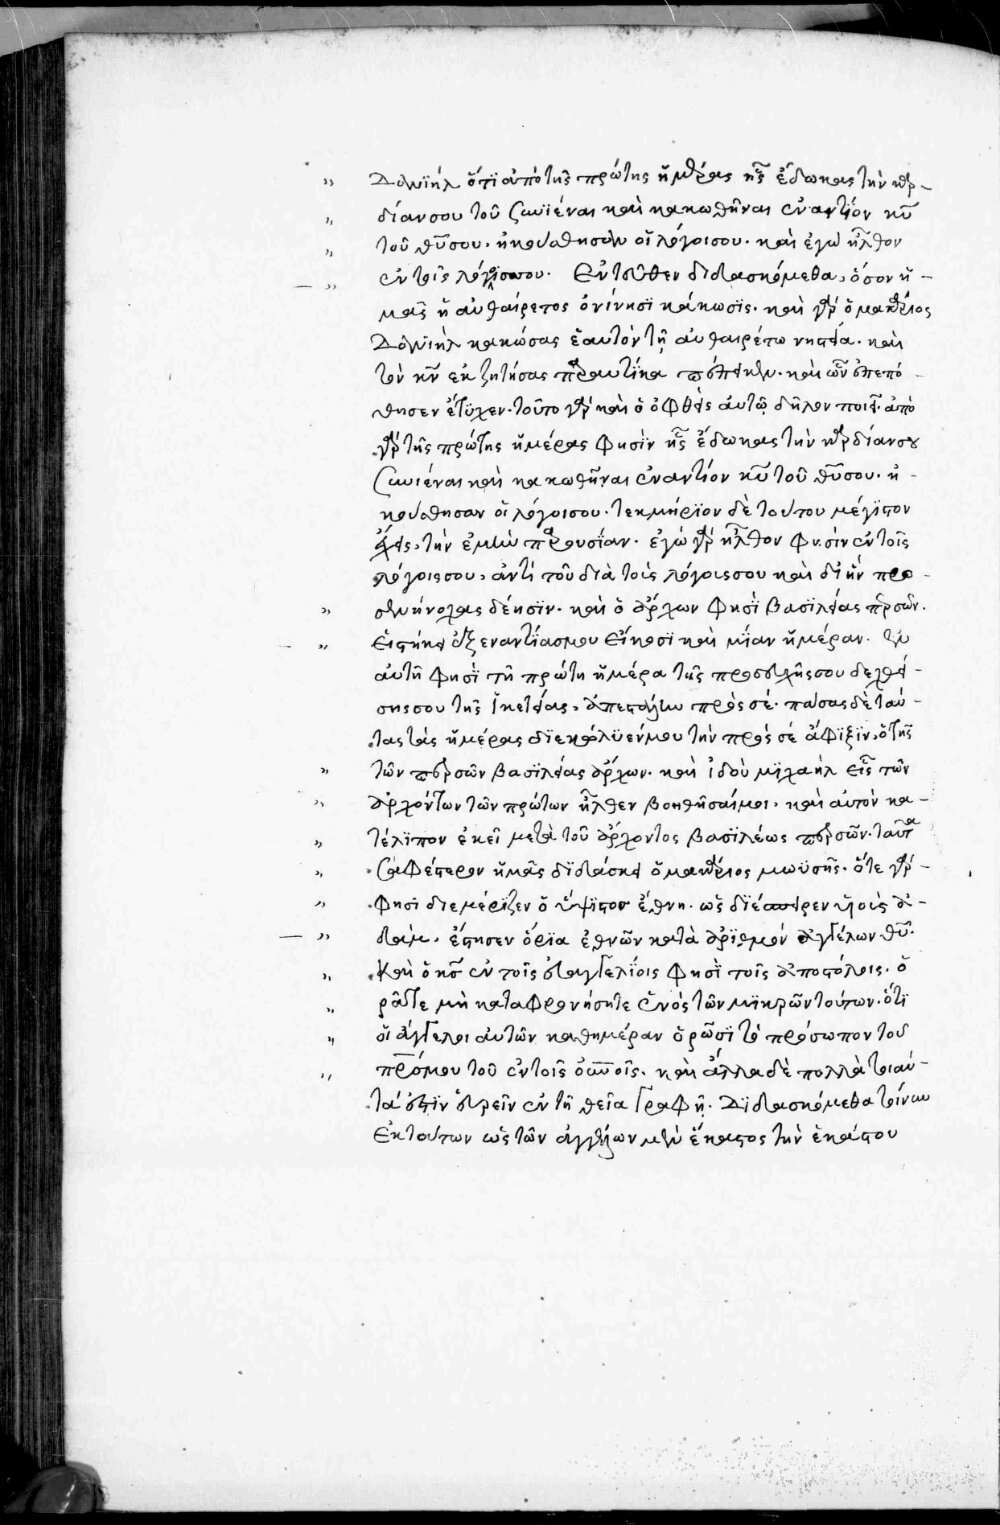 Δανιὴλ ὅτι ἀπὸ τῆς πρώτης ἡμέρας ἧς ἔδωκας τὴν καρ-
δίαν σου τοῦ συνιέναι καὶ κακωθῆναι ἐναντίον κ̅υ̅
τοῦ θ̅υ̅ σου. ἠκούσθησαν οἱ λόγοι σου. καὶ ἐγὼ ἦλθον
ἐν τοῖς λόγοις σου. Ἐντεῦθεν διδασκόμεθα, ὅσον ἡ-
μᾶς ἡ αὐθαίρετος ὀνίνησι κάκωσις. καὶ γὰρ ὁ μακάριος
Δανιὴλ κακώσας ἑαυτὸν τῇ αὐθαιρέτω νηστεία. καὶ
τὸν κ̅ν̅ ἐκζητήσας παραυτίκα
θησεν ἔτυχεν. τοῦτο γὰρ καὶ ὁ ὀφθεὶς αὐτῷ δῆλον ποιεῖ. ἀπὸ
γὰρ τῆς πρώτης ἡμέρας φησὶν ἧς ἔδωκας τὴν καρδίαν σου
συνιέναι καὶ κακωθῆναι ἐναντίον κ̅υ̅ τοῦ θ̅υ̅ σου. ἠ-
κούσθησαν οἱ λόγοι σου. τεκμήριον δὲ τούτου μέγιστον
ἔχεις, τὴν ἐμὴν παρουσίαν. ἐγὼ γὰρ ἦλθον φησὶν ἐν τοῖς
λόγοις σου, ἀντὶ τοῦ διὰ τοὺς λόγους σου καὶ δι' ἣν προ-
σενήνοχας δέησιν. καὶ ὁ ἄρχων φησὶ βασιλείας περσῶν.
Εἱστήκει ἐξεναντίας μου εἴκοσι καὶ μίαν ἡμέραν. ἐν
αὐτῇ φησὶ τῇ πρώτη ἡμέρα τῆς προσευχῆς σου δεχθεί-
σης σου τῆς ἱκετείας, ἀπεστάλην πρὸς σέ. πάσας δὲ ταύ-
τας τὰς ἡμέρας διεκώλυέν μου τὴν πρὸς σὲ ἄφιξιν, ὁ τῆς
τῶν περσῶν βασιλείας ἄρχων. καὶ ἰδοὺ μιχαὴλ εἷς τῶν
ἀρχόντων τῶν πρώτων ἦλθεν βοηθῆσαί μοι. καὶ αὐτὸν κα-
τέλιπον ἐκεῖ μετὰ τοῦ ἄρχοντος βασιλέως περσῶν. ταῦτα
σαφέστερον ἡμᾶς διδάσκει ὁ μακάριος μωϋσῆς. ὅτε γὰρ
φησὶ διεμέριζεν ὁ ὕψιστος ἔθνη. ὡς διέσπειρεν υἱοὺς ἀ-
δάμ. ἔστησεν ὅρια ἐθνῶν κατὰ ἀριθμὸν ἀγγέλων θ̅υ̅.
Καὶ ὁ κ̅ς̅ ἐν τοῖς εὐαγγελίοις φησὶ τοῖς ἀποστόλοις. ὁ
ρᾶτε μὴ καταφρονήσητε ἑνὸς τῶν μικρῶν τούτων. ὅτι
οἱ ἄγγελοι αὐτῶν καθημέραν ὁρῶσι τὸ πρόσωπον τοῦ
π̅ρ̅ό̅ς μου τοῦ ἐν τοῖς ο̅υ̅ν̅οῖς. καὶ ἄλλα δὲ πολλὰ τοιαῦ-
τα ἔστιν εὑρεῖν ἐν τῇ θεία γραφῇ. Διδασκόμεθα τοίνυν
ἐκ τούτων ὡς τῶν ἀγγέλων μὲν ἕκαστος τὴν ἑκάστου